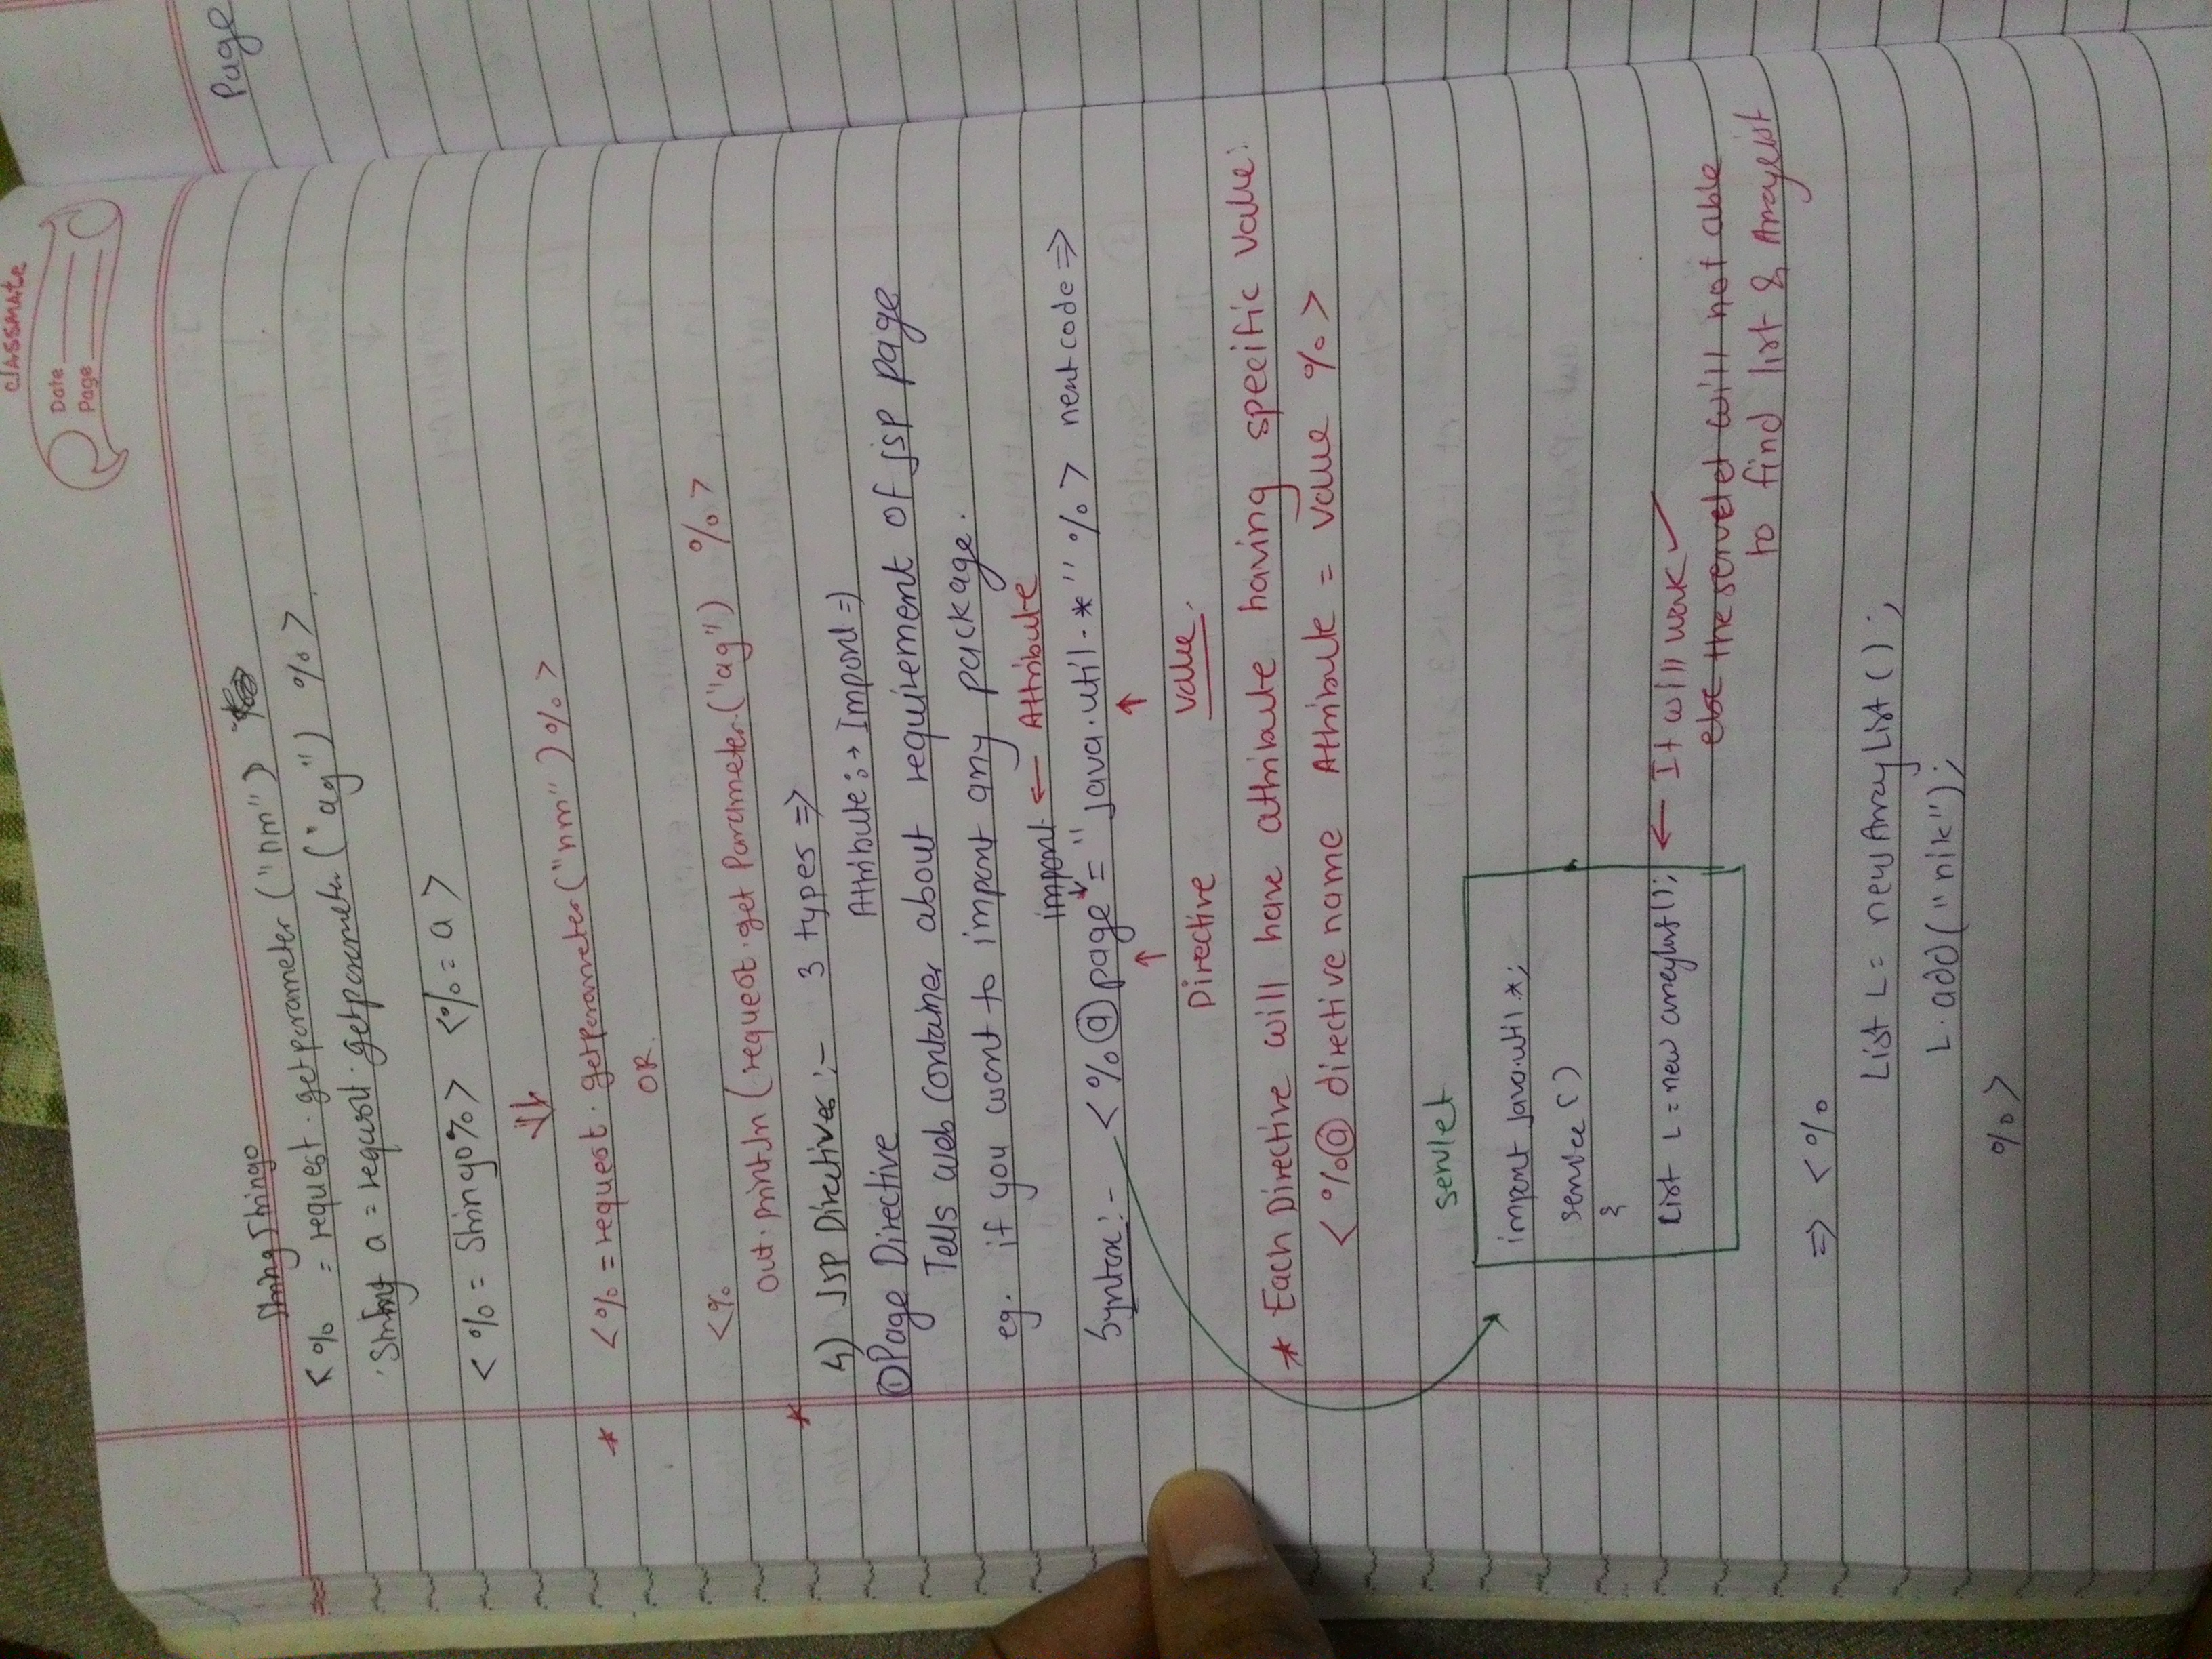 classmate
Date
Page
String Stringo
<% = request.getparameter("nm")
String a = request.getparameter("ag") %>
<%= Stringo%> <%= a >
* <% = request.getParameter("nm")%>
OR.
<%
out.println(request.get Parameter.("ag") %>
*
4) JSP Directives :- 3 types =>
Attribute :→ Import =>
① Page Directive
Tells web container about requirement of jsp page
eg. if you want to import any package.
import ← Attribute
Syntax :- <%@page = "java.util.*" %> next code =>
↑ ↑
Directive value.
* Each Directive will have attribute having specific value:
<%@ directive name Attribute = value %>
servlet
import java.util.*;
service()
{
List L = new arraylist(); ← It will work ✓
else the servelet will not able
to find list & Arraylist
=> <%
List L = new ArrayList();
L.add("nik");
%>
Page